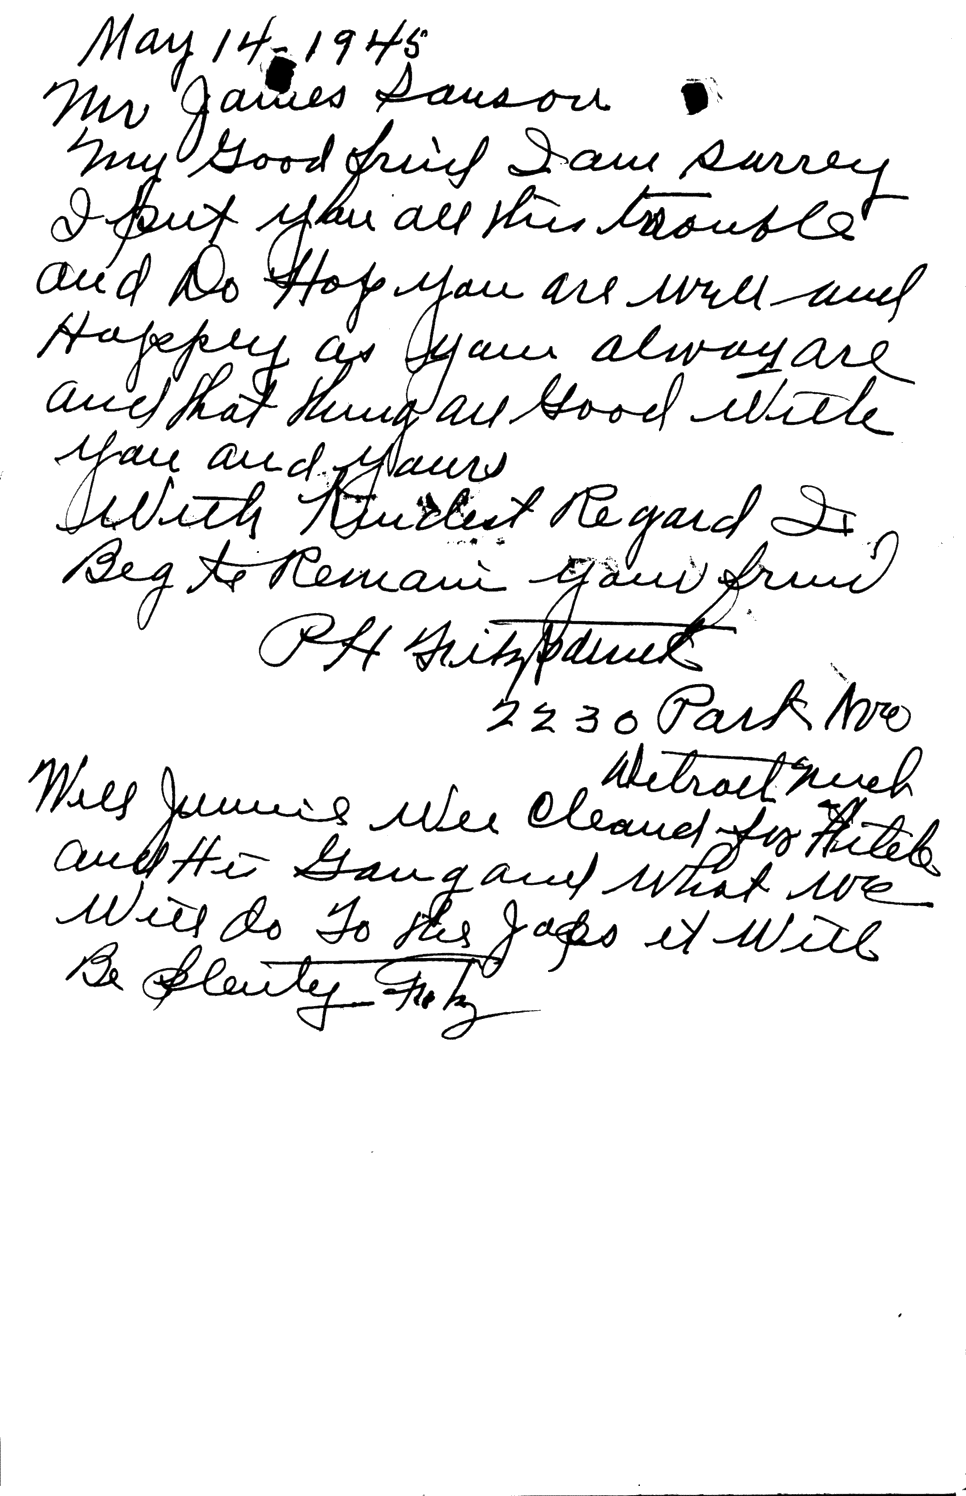 May 14-1945
Mr James Sanson
My Good frind I am surrey
I put you all this trouble
and Do Hope you are well and
Happey as your alway are
and that thing are Good With
you and yours
With Kindest Regard I
Beg to Remain your frind
P H Fitzpatrick
2230 Park Ave
Detroit Mich
Well Jimmie We Cleand for Hitels
and His Gang and What We
Will do To the Japs it Will
Be Plenty Fitz